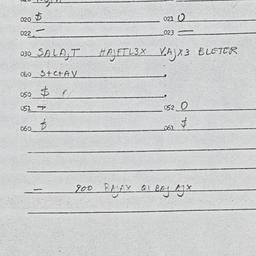 020 $ 021 0
022 - 023 -
030 SALAJT HAJFTL3X VAJX3 ELETER
040 S+C+AV
050 $
051 + 052 0
060 $ 061 $
- 900 RAJAX QI BAJ AJX